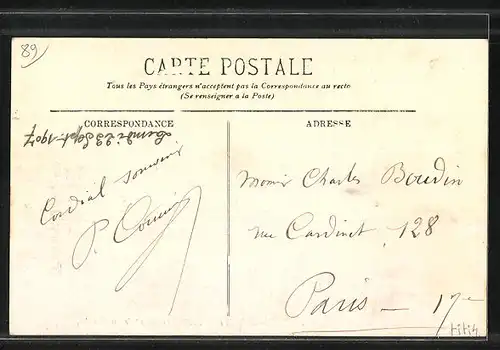 89
CARTE POSTALE
Tous les Pays étrangers n'acceptent pas la Correspondance au recto
(Se renseigner a la Poste)
CORRESPONDANCE
Lundi 23 Sept. 1907
Cordial souvenir
P.
ADRESSE
Charles Boudin
rue Cardinet, 128
Paris — 17e